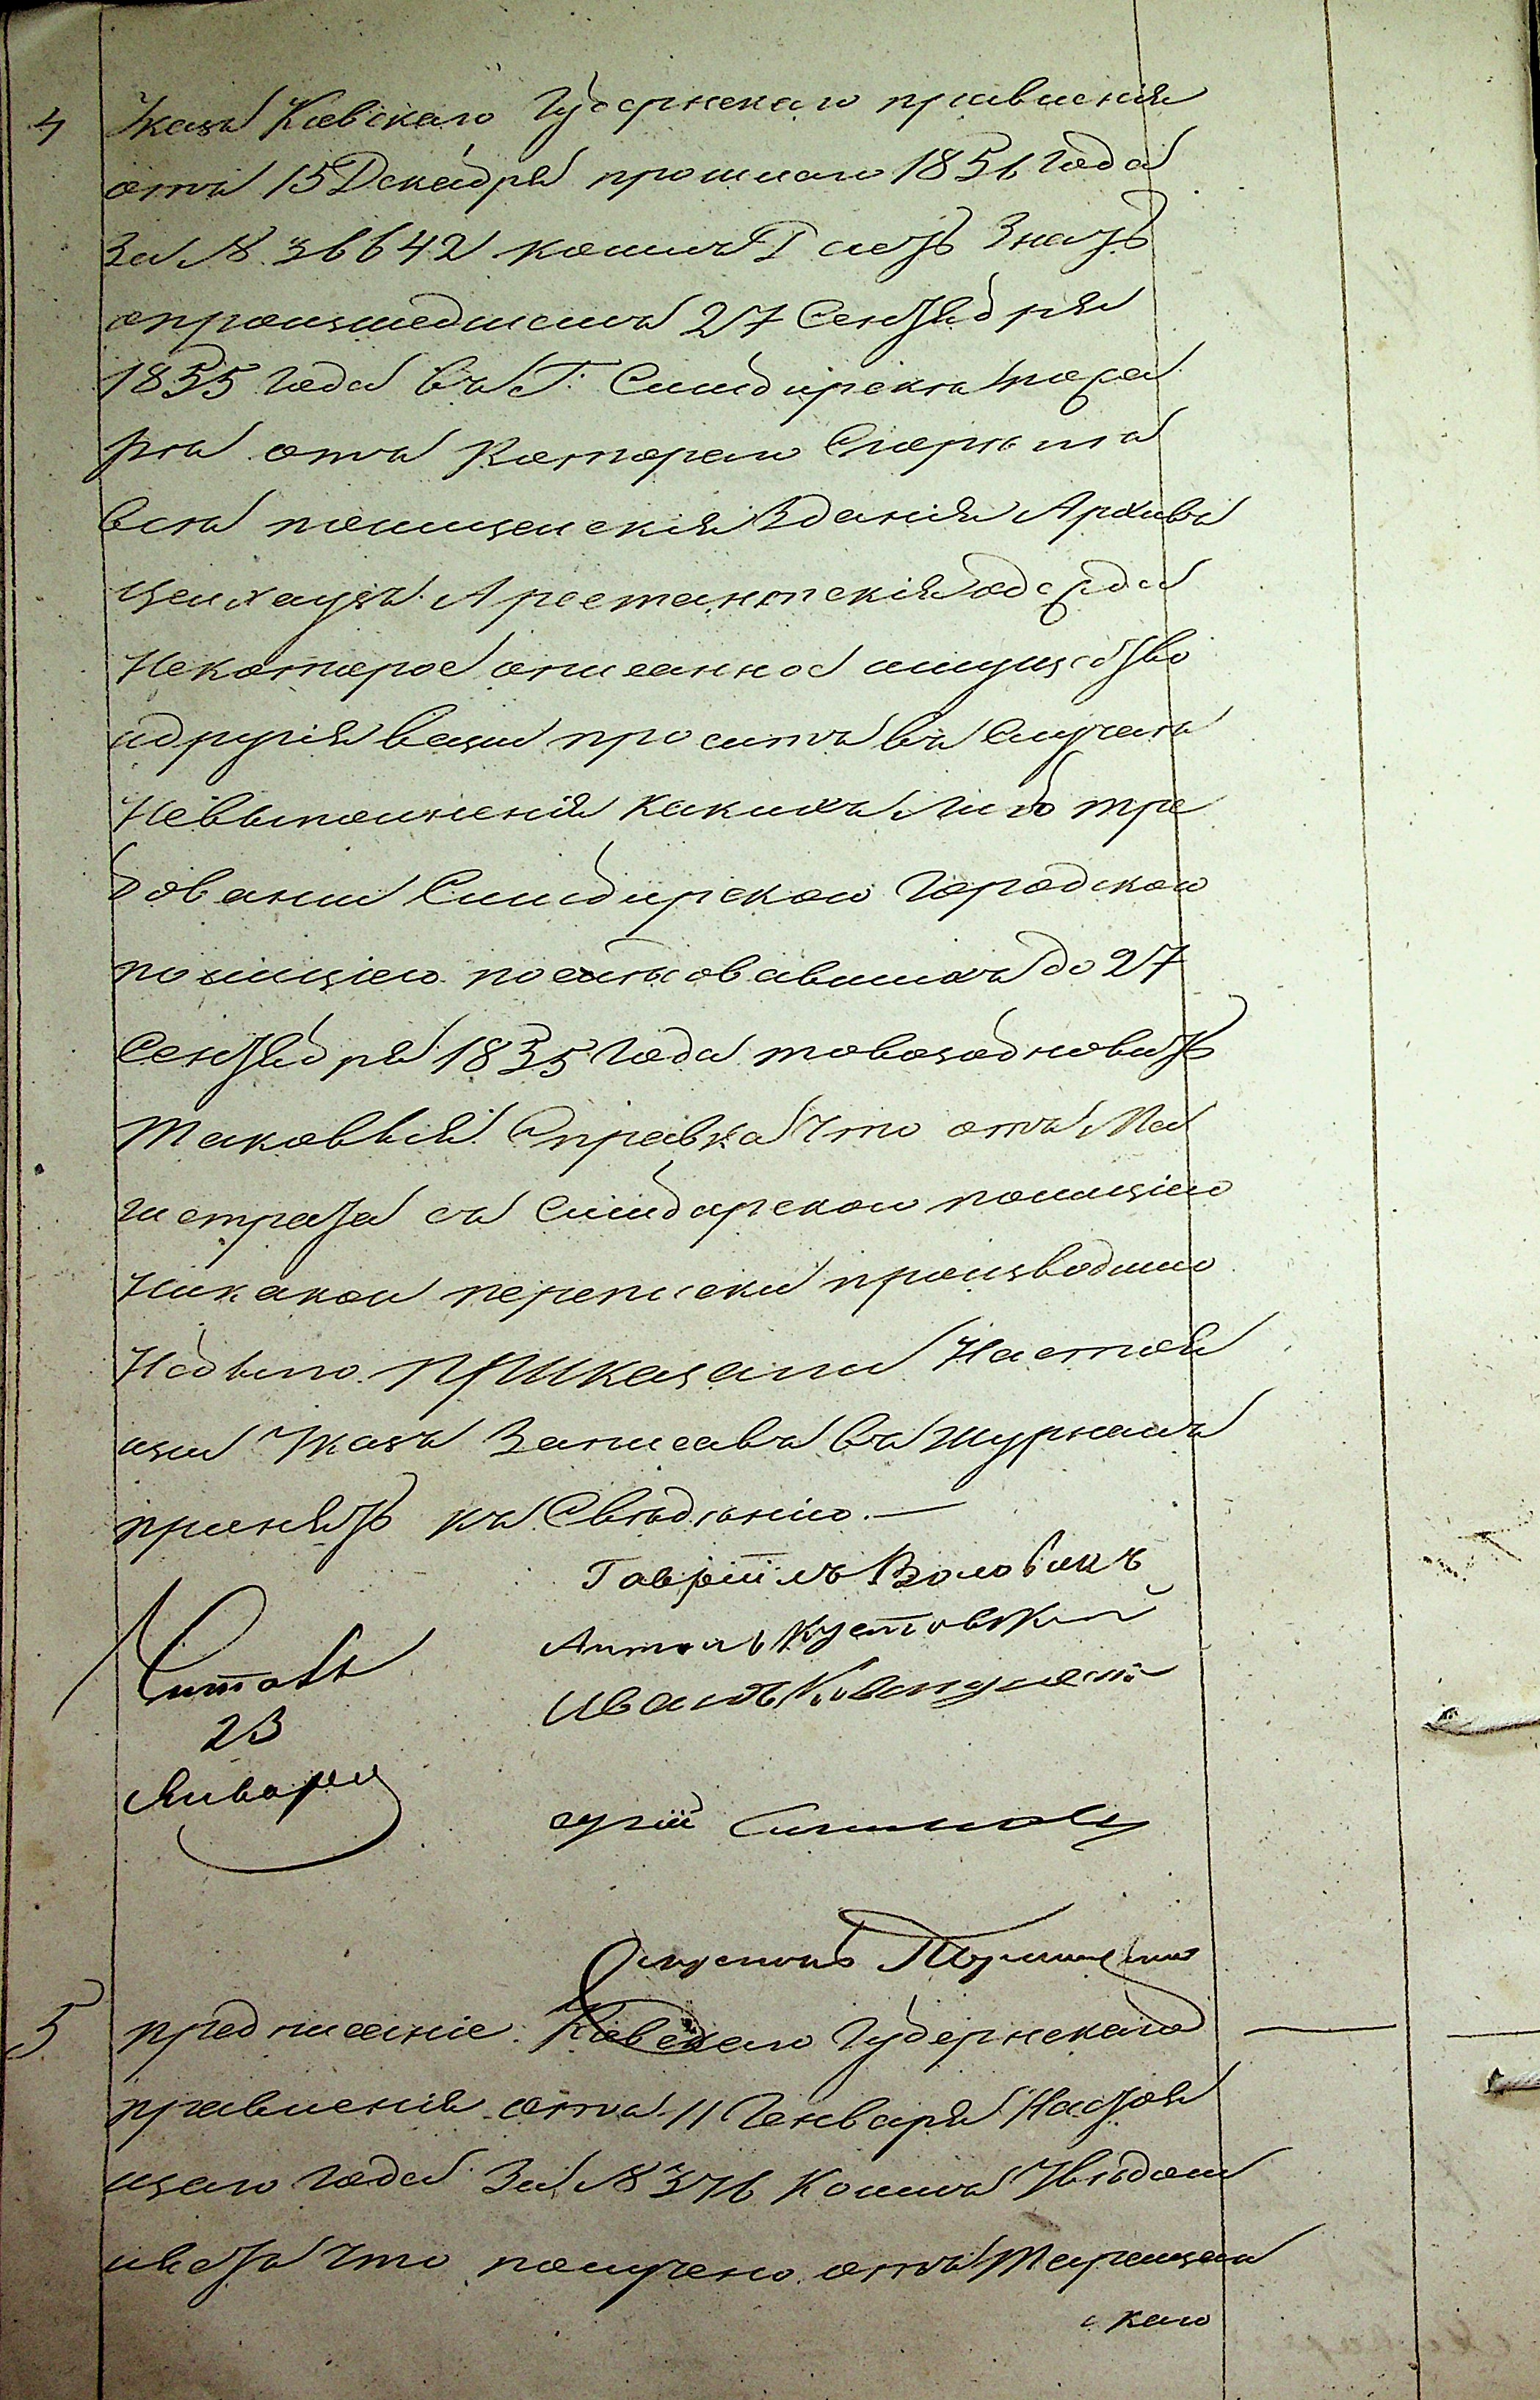 4 Указъ Кіевскаго Губернскаго правленія
отъ 15 Декабря прошлаго 1836 года
За № 36642 коимъ Даетъ Знать
опроизшедшемъ 27 Сентября
1835 года въ Г. Симбирскѣ пожа
рѣ отъ Котораго Сгорѣли
всѣ полицейскія Зданія Архивъ
цейхаузъ Арестантскія одежда
Некоторое описанное имущество
идругія вещи проситъ въ Случаѣ
Невыполненія какихъ либо тре
бованіи Симбирскою Городскою
полициею последовавшихъ до 27
Сентября 1835 года товозобновить
Таковыя. Справка Что отъ Ма
гистрата съ Симбирскою полициею
Никакои переписки производимо
Небыло. Приказали Настоя
щіи Указъ Записавъ въ журналъ
принять къ Сведѣнію. —
Гавріилъ Воловикъ
Антонъ Кустовскій
Иванъ
Читалъ
23
Января
5 предписаніе Кіевскаго Губернскаго
правленія отъ 11 Генваря Настоя
щаго года За № 376 Коимъ Увѣдом
ляетъ Что получено отъ Таращан
скаго